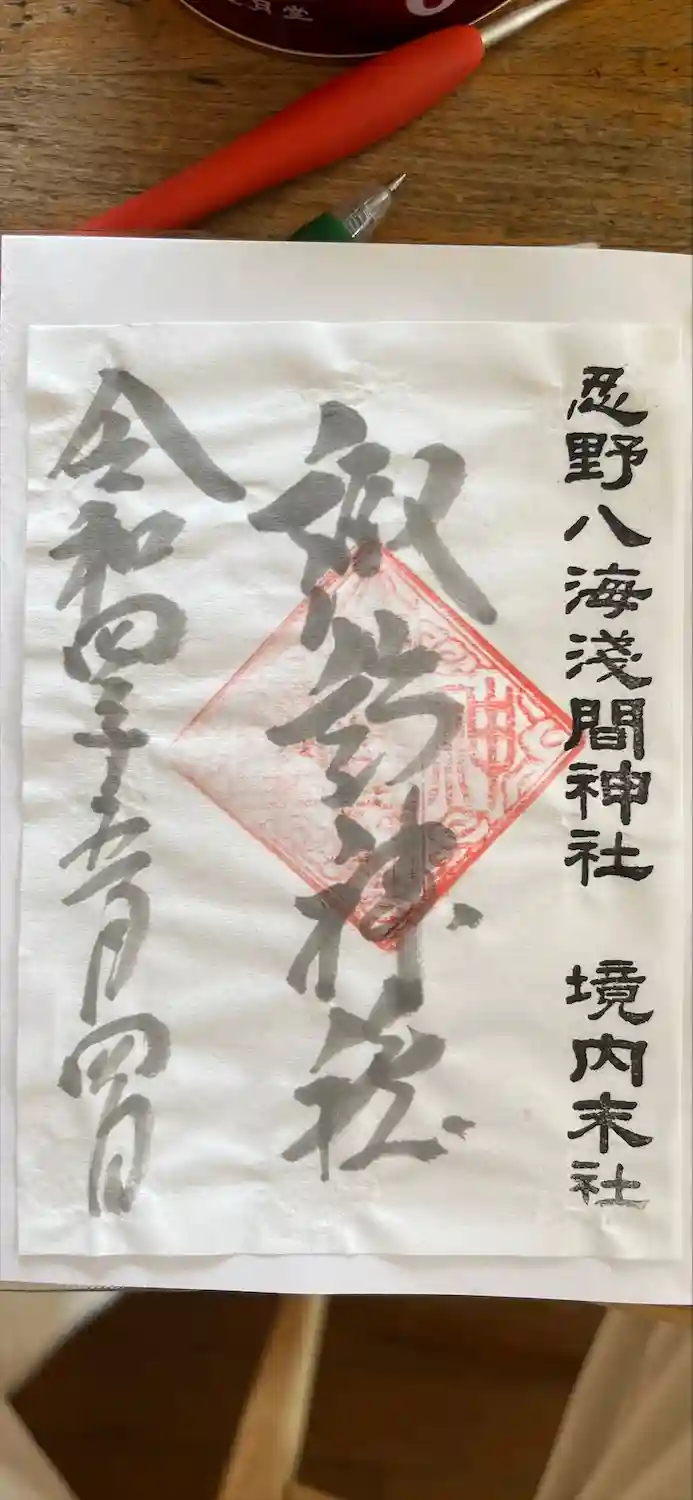 忍野八海淺間神社 境内末社
神社
令和四年五月四日
月堂